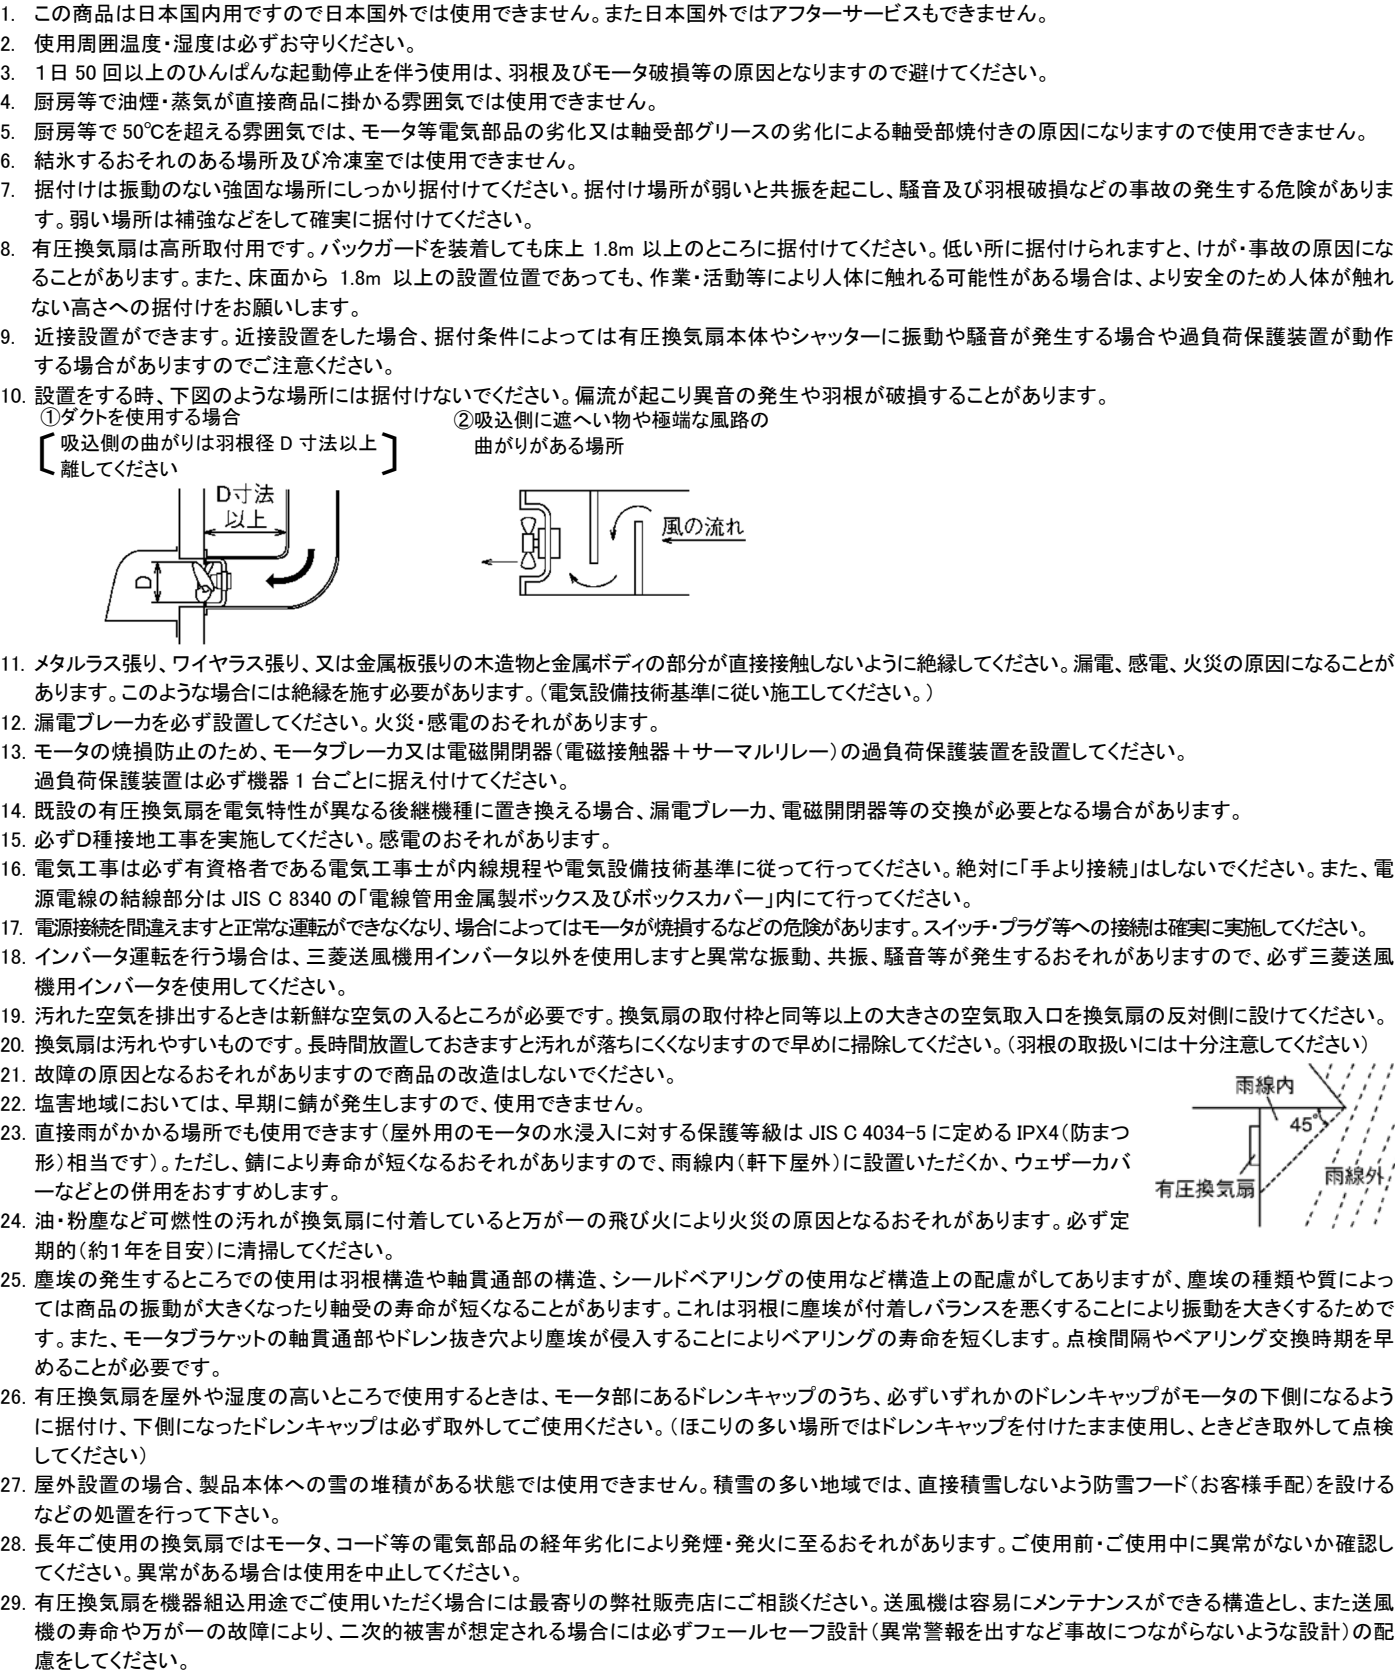 1. この商品は日本国内用ですので日本国外では使用できません。また日本国外ではアフターサービスもできません。
2. 使用周囲温度・湿度は必ずお守りください。
3. １日 50 回以上のひんぱんな起動停止を伴う使用は、羽根及びモータ破損等の原因となりますので避けてください。
4. 厨房等で油煙・蒸気が直接商品に掛かる雰囲気では使用できません。
5. 厨房等で 50℃を超える雰囲気では、モータ等電気部品の劣化又は軸受部グリースの劣化による軸受部焼付きの原因になりますので使用できません。
6. 結氷するおそれのある場所及び冷凍室では使用できません。
7. 据付けは振動のない強固な場所にしっかり据付けてください。据付け場所が弱いと共振を起こし、騒音及び羽根破損などの事故の発生する危険がありま
す。弱い場所は補強などをして確実に据付けてください。
8. 有圧換気扇は高所取付用です。バックガードを装着しても床上 1.8m 以上のところに据付けてください。低い所に据付けられますと、けが・事故の原因にな
ることがあります。また、床面から 1.8m 以上の設置位置であっても、作業・活動等により人体に触れる可能性がある場合は、より安全のため人体が触れ
ない高さへの据付けをお願いします。
9. 近接設置ができます。近接設置をした場合、据付条件によっては有圧換気扇本体やシャッターに振動や騒音が発生する場合や過負荷保護装置が動作
する場合がありますのでご注意ください。
10. 設置をする時、下図のような場所には据付けないでください。偏流が起こり異音の発生や羽根が破損することがあります。
①ダクトを使用する場合
吸込側の曲がりは羽根径 D 寸法以上
離してください
②吸込側に遮へい物や極端な風路の
曲がりがある場所
D寸法
以上
D
風の流れ
11. メタルラス張り、ワイヤラス張り、又は金属板張りの木造物と金属ボディの部分が直接接触しないように絶縁してください。漏電、感電、火災の原因になることが
あります。このような場合には絶縁を施す必要があります。（電気設備技術基準に従い施工してください。）
12. 漏電ブレーカを必ず設置してください。火災・感電のおそれがあります。
13. モータの焼損防止のため、モータブレーカ又は電磁開閉器（電磁接触器＋サーマルリレー）の過負荷保護装置を設置してください。
過負荷保護装置は必ず機器 1 台ごとに据え付けてください。
14. 既設の有圧換気扇を電気特性が異なる後継機種に置き換える場合、漏電ブレーカ、電磁開閉器等の交換が必要となる場合があります。
15. 必ずＤ種接地工事を実施してください。感電のおそれがあります。
16. 電気工事は必ず有資格者である電気工事士が内線規程や電気設備技術基準に従って行ってください。絶対に「手より接続」はしないでください。また、電
源電線の結線部分は JIS C 8340 の「電線管用金属製ボックス及びボックスカバー」内にて行ってください。
17. 電源接続を間違えますと正常な運転ができなくなり、場合によってはモータが焼損するなどの危険があります。スイッチ・プラグ等への接続は確実に実施してください。
18. インバータ運転を行う場合は、三菱送風機用インバータ以外を使用しますと異常な振動、共振、騒音等が発生するおそれがありますので、必ず三菱送風
機用インバータを使用してください。
19. 汚れた空気を排出するときは新鮮な空気の入るところが必要です。換気扇の取付枠と同等以上の大きさの空気取入口を換気扇の反対側に設けてください。
20. 換気扇は汚れやすいものです。長時間放置しておきますと汚れが落ちにくくなりますので早めに掃除してください。（羽根の取扱いには十分注意してください）
21. 故障の原因となるおそれがありますので商品の改造はしないでください。
22. 塩害地域においては、早期に錆が発生しますので、使用できません。
23. 直接雨がかかる場所でも使用できます（屋外用のモータの水浸入に対する保護等級は JIS C 4034-5 に定める IPX4（防まつ
形）相当です）。ただし、錆により寿命が短くなるおそれがありますので、雨線内（軒下屋外）に設置いただくか、ウェザーカバ
ーなどとの併用をおすすめします。
雨線内
45°
有圧換気扇
雨線外
24. 油・粉塵など可燃性の汚れが換気扇に付着していると万が一の飛び火により火災の原因となるおそれがあります。必ず定
期的（約１年を目安）に清掃してください。
25. 塵埃の発生するところでの使用は羽根構造や軸貫通部の構造、シールドベアリングの使用など構造上の配慮がしてありますが、塵埃の種類や質によっ
ては商品の振動が大きくなったり軸受の寿命が短くなることがあります。これは羽根に塵埃が付着しバランスを悪くすることにより振動を大きくするためで
す。また、モータブラケットの軸貫通部やドレン抜き穴より塵埃が侵入することによりベアリングの寿命を短くします。点検間隔やベアリング交換時期を早
めることが必要です。
26. 有圧換気扇を屋外や湿度の高いところで使用するときは、モータ部にあるドレンキャップのうち、必ずいずれかのドレンキャップがモータの下側になるよう
に据付け、下側になったドレンキャップは必ず取外してご使用ください。（ほこりの多い場所ではドレンキャップを付けたまま使用し、ときどき取外して点検
してください）
27. 屋外設置の場合、製品本体への雪の堆積がある状態では使用できません。積雪の多い地域では、直接積雪しないよう防雪フード（お客様手配）を設ける
などの処置を行って下さい。
28. 長年ご使用の換気扇ではモータ、コード等の電気部品の経年劣化により発煙・発火に至るおそれがあります。ご使用前・ご使用中に異常がないか確認し
てください。異常がある場合は使用を中止してください。
29. 有圧換気扇を機器組込用途でご使用いただく場合には最寄りの弊社販売店にご相談ください。送風機は容易にメンテナンスができる構造とし、また送風
機の寿命や万が一の故障により、二次的被害が想定される場合には必ずフェールセーフ設計（異常警報を出すなど事故につながらないような設計）の配
慮をしてください。